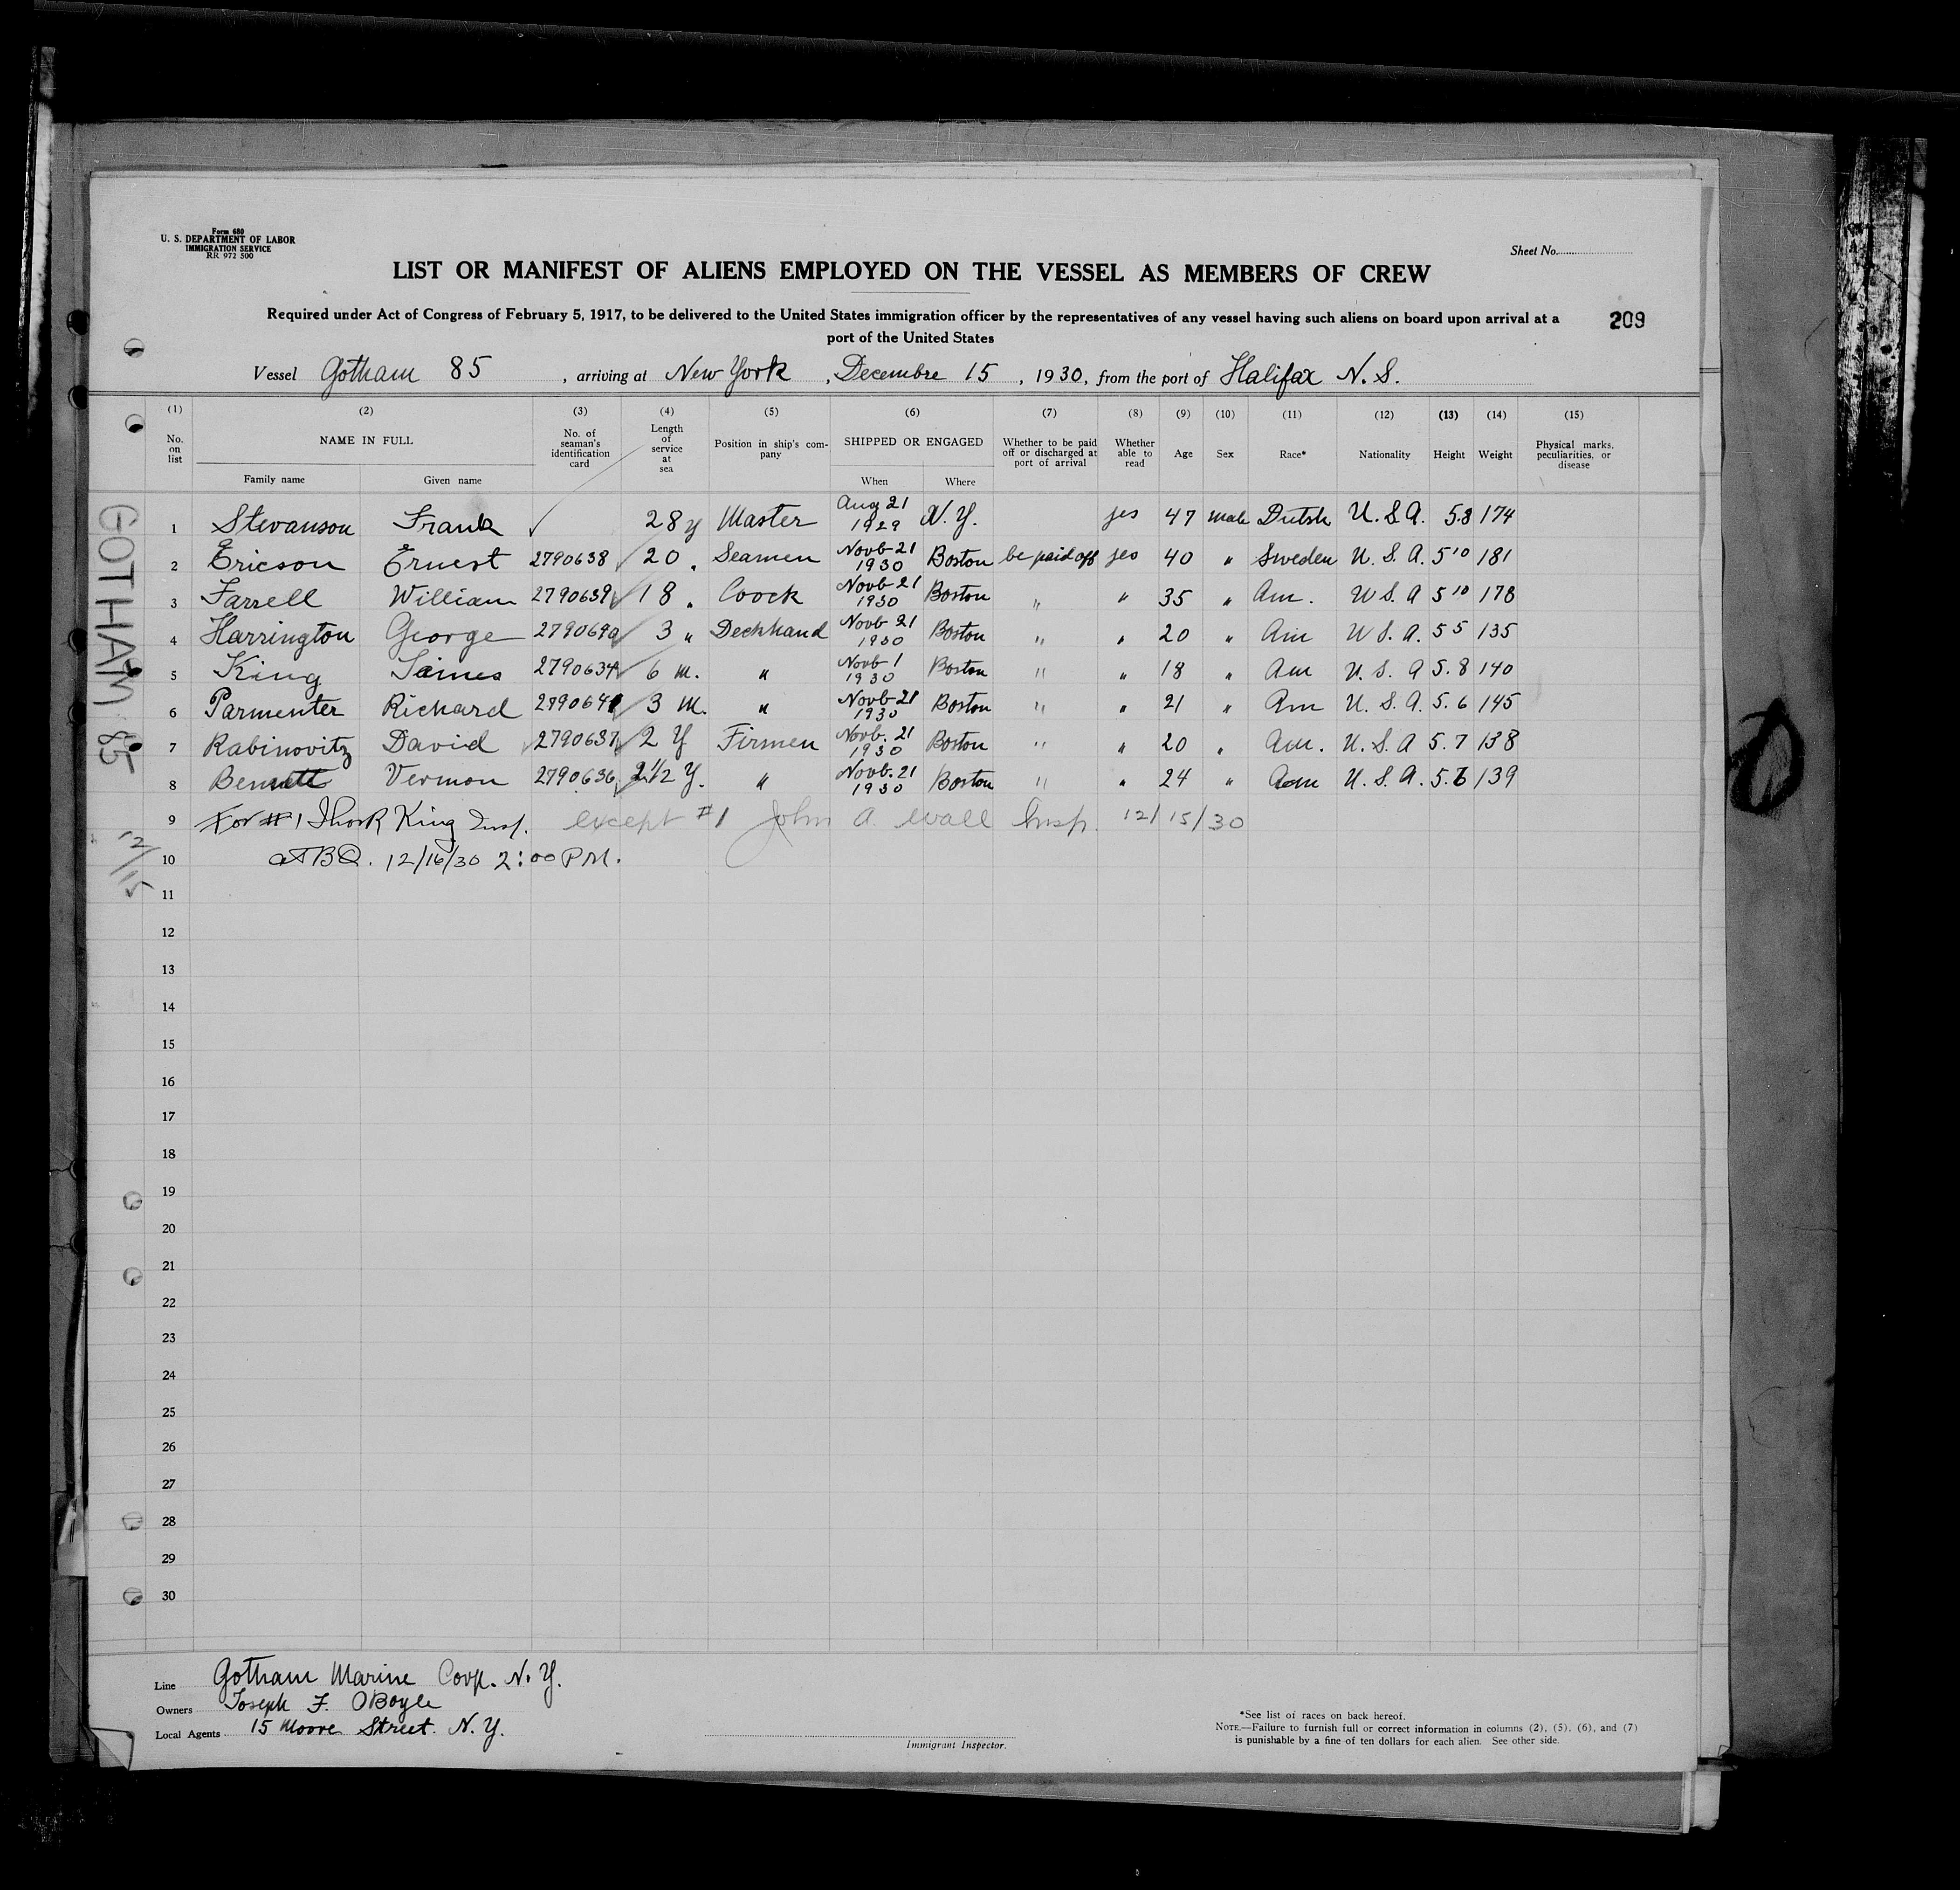 Form 680
U. S. DEPARTMENT OF LABOR
IMMIGRATION SERVICE
RR 972 500
Sheet No.
LIST OR MANIFEST OF ALIENS EMPLOYED ON THE VESSEL AS MEMBERS OF CREW
Required under Act of Congress of February 5, 1917, to be delivered to the United States immigration officer by the representatives of any vessel having such aliens on board upon arrival at a
port of the United States
209
Vessel Gotham 85, arriving at New York, Decembre 15, 1930, from the port of Halifax N. S.
(1) (2) (3) (4) (5) (6) (7) (8) (9) (10) (11) (12) (13) (14) (15)
No. on list NAME IN FULL Family name Given name No. of seaman's identification card Length of service at sea Position in ship's company SHIPPED OR ENGAGED When Where Whether to be paid off or discharged at port of arrival Whether able to read Age Sex Race* Nationality Height Weight Physical marks, peculiarities, or disease
1 Stevanson Frank 28 y Master Aug 21 1929 N. Y. yes 47 male Dutsh U. S. A. 5.8 174
2 Ericson Ernest 2790638 20 " Seamen Novb 21 1930 Boston be paid off yes 40 " Sweden U. S. A. 5 10 181
3 Farrell William 2790639 18 " Coock Novb 21 1930 Boston " " 35 " Am. U S. A 5 10 178
4 Harrington George 2790690 3 " Deckhand Novb 21 1930 Boston " " 20 " Am U S. A. 5 5 135
5 King James 2790634 6 m. " Novb 1 1930 Boston " " 18 " Am U. S. A 5. 8 140
6 Parmenter Richard 2790641 3 M. " Novb 21 1930 Boston " " 21 " Am U. S. A. 5. 6 145
7 Rabinovitz David 2790637 2 Y Firmen Novb. 21 1930 Boston " " 20 " Am. U. S. A 5. 7 138
8 Bennett Vermon 2790636 2 1/2 Y. " Novb. 21 1930 Boston " " 24 " Am U. S. A. 5. 6 139
9 For # 1 King Insp. except #1 John A. Wall Insp. 12/15/30
10 at B.O. 12/16/30 2:00 P.M.
11
12
13
14
15
16
17
18
19
20
21
22
23
24
25
26
27
28
29
30
GOTHAM 85
12/15
Line Gotham Marine Corp. N. Y.
Owners Joseph F. OBoyle
Local Agents 15 Moore Street. N. Y.
Immigrant Inspector.
*See list of races on back hereof.
NOTE.—Failure to furnish full or correct information in columns (2), (5), (6), and (7)
is punishable by a fine of ten dollars for each alien. See other side.